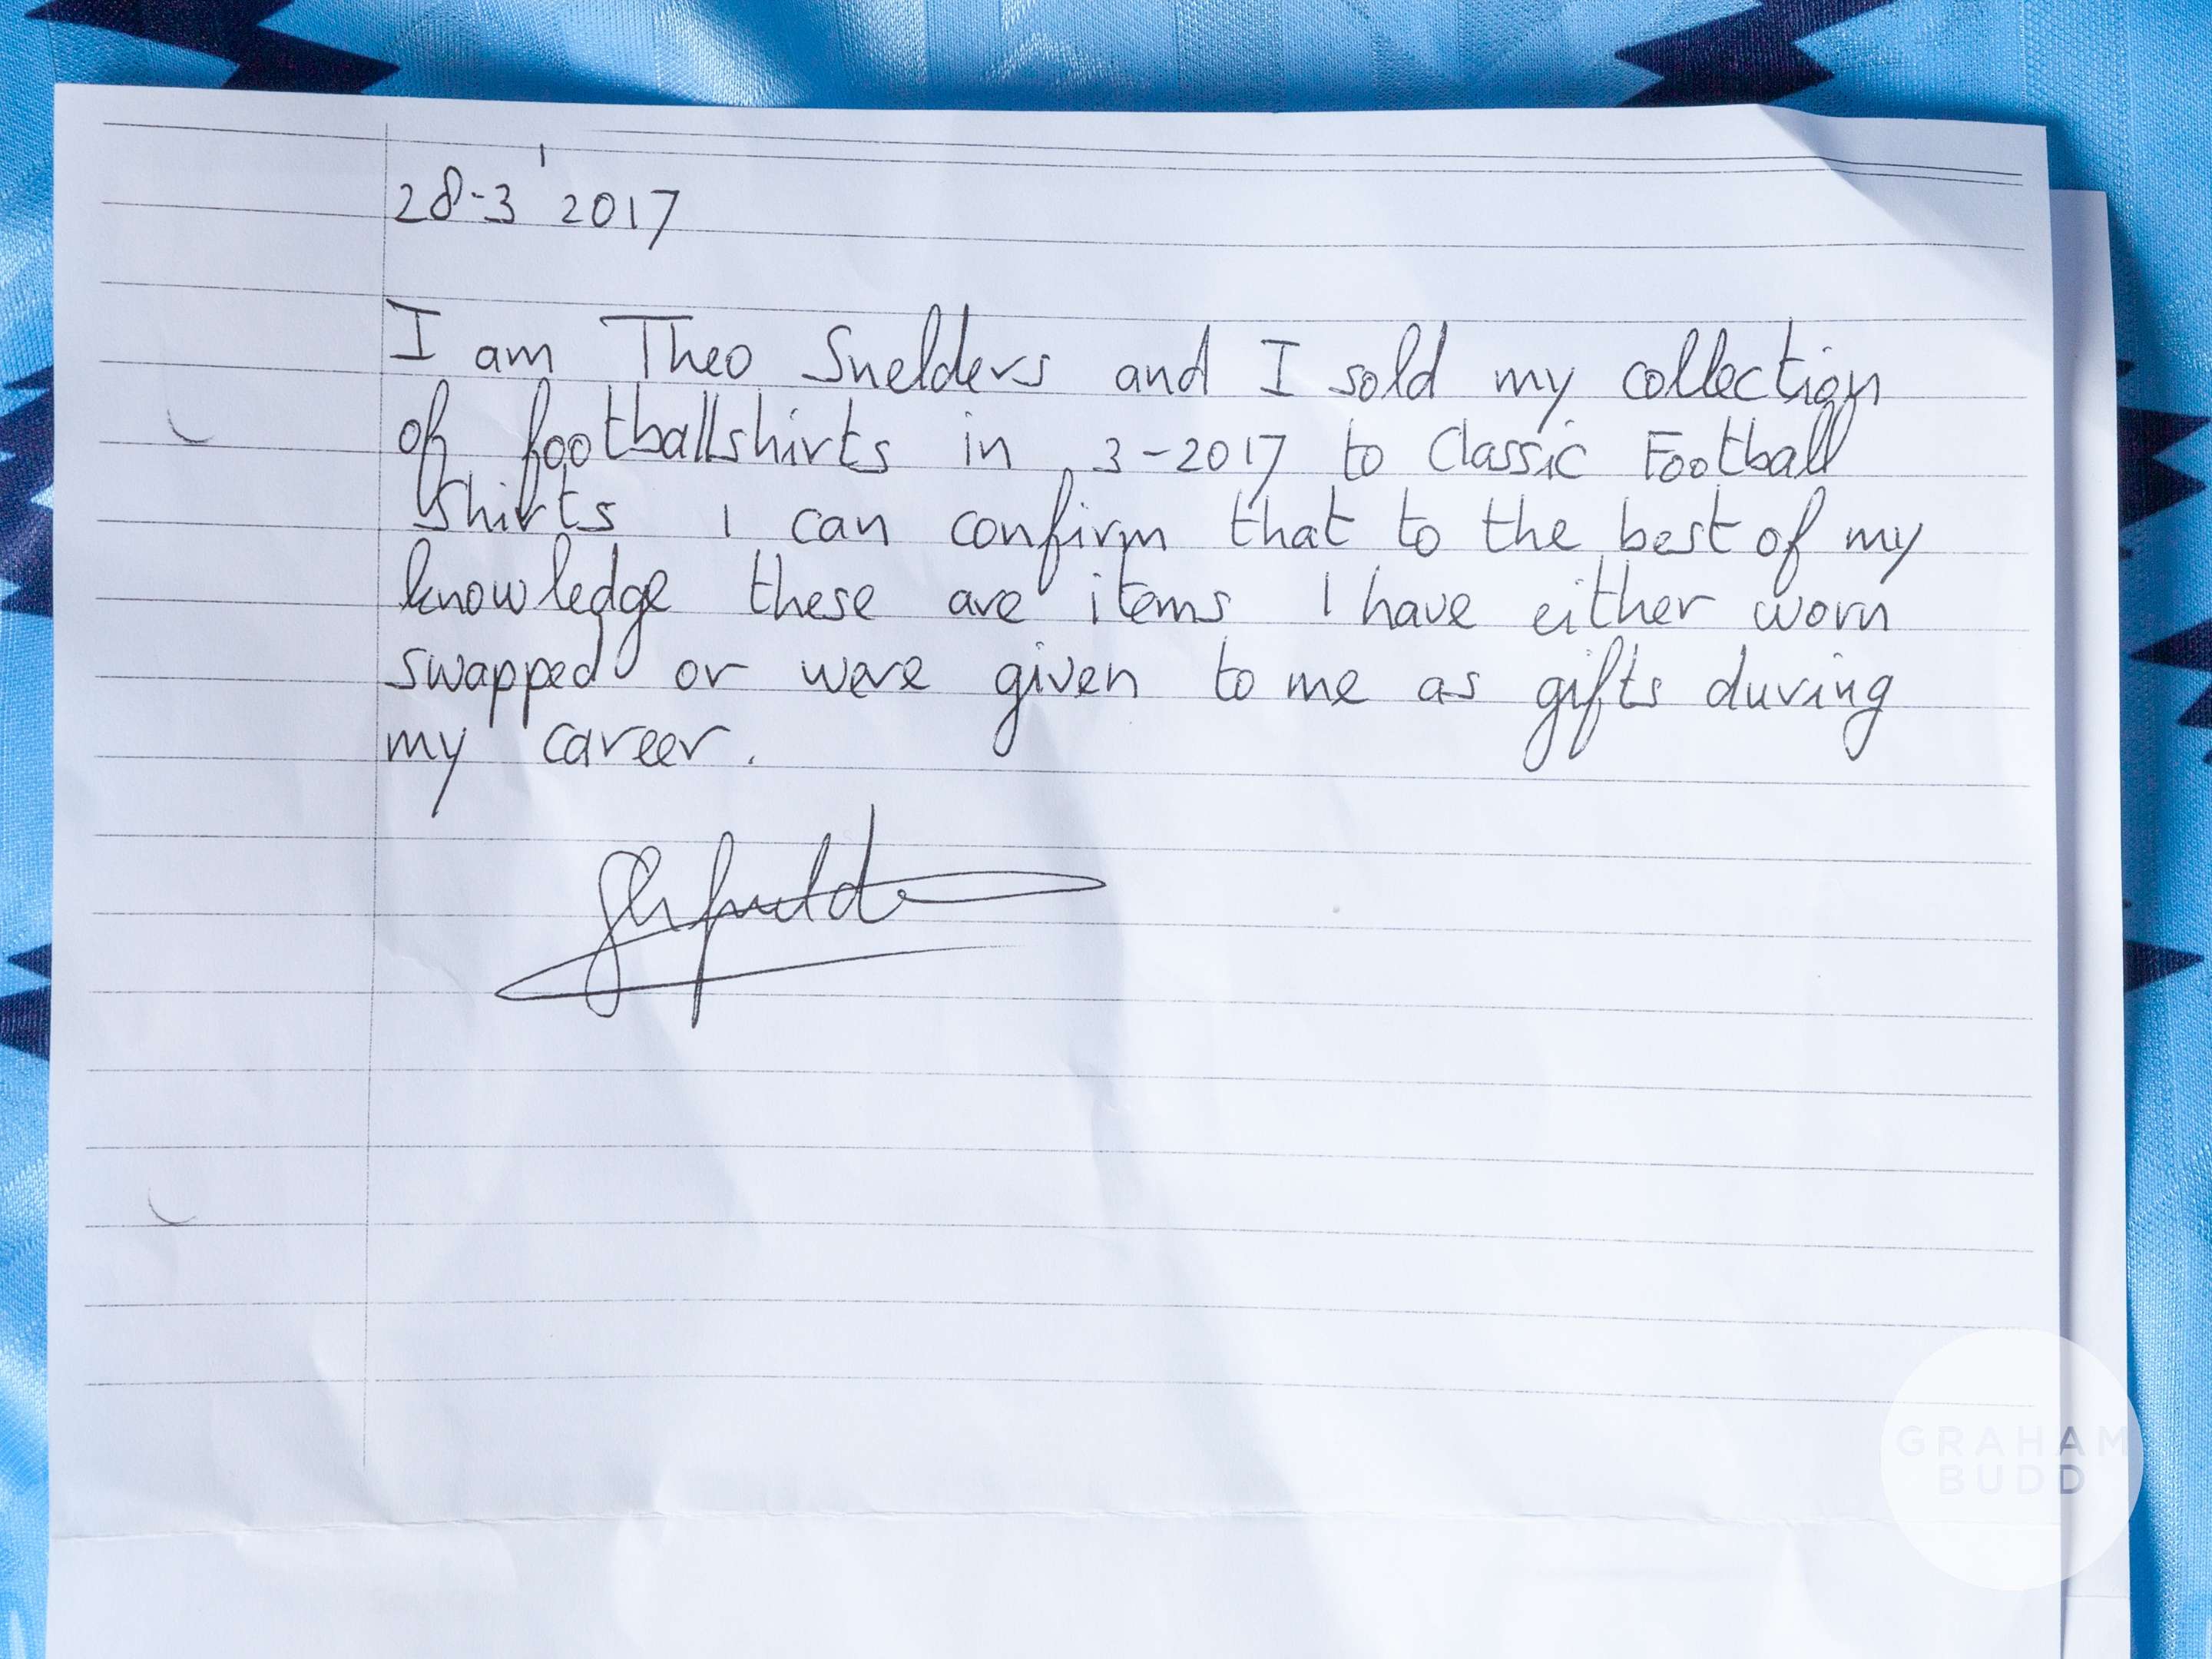 28-3' 2017
I am Theo Snelders and I sold my collection
of footballshirts in 3-2017 to Classic Football
Shirts I can confirm that to the best of my
knowledge these are items I have either worn
swapped or were given to me as gifts during
my career.
GRAHAM
BUDD